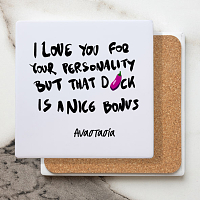 I LOVE YOU FOR
YOUR PERSONALITY
BUT THAT D🍆CK
IS A NICE BONUS
Αναστασία